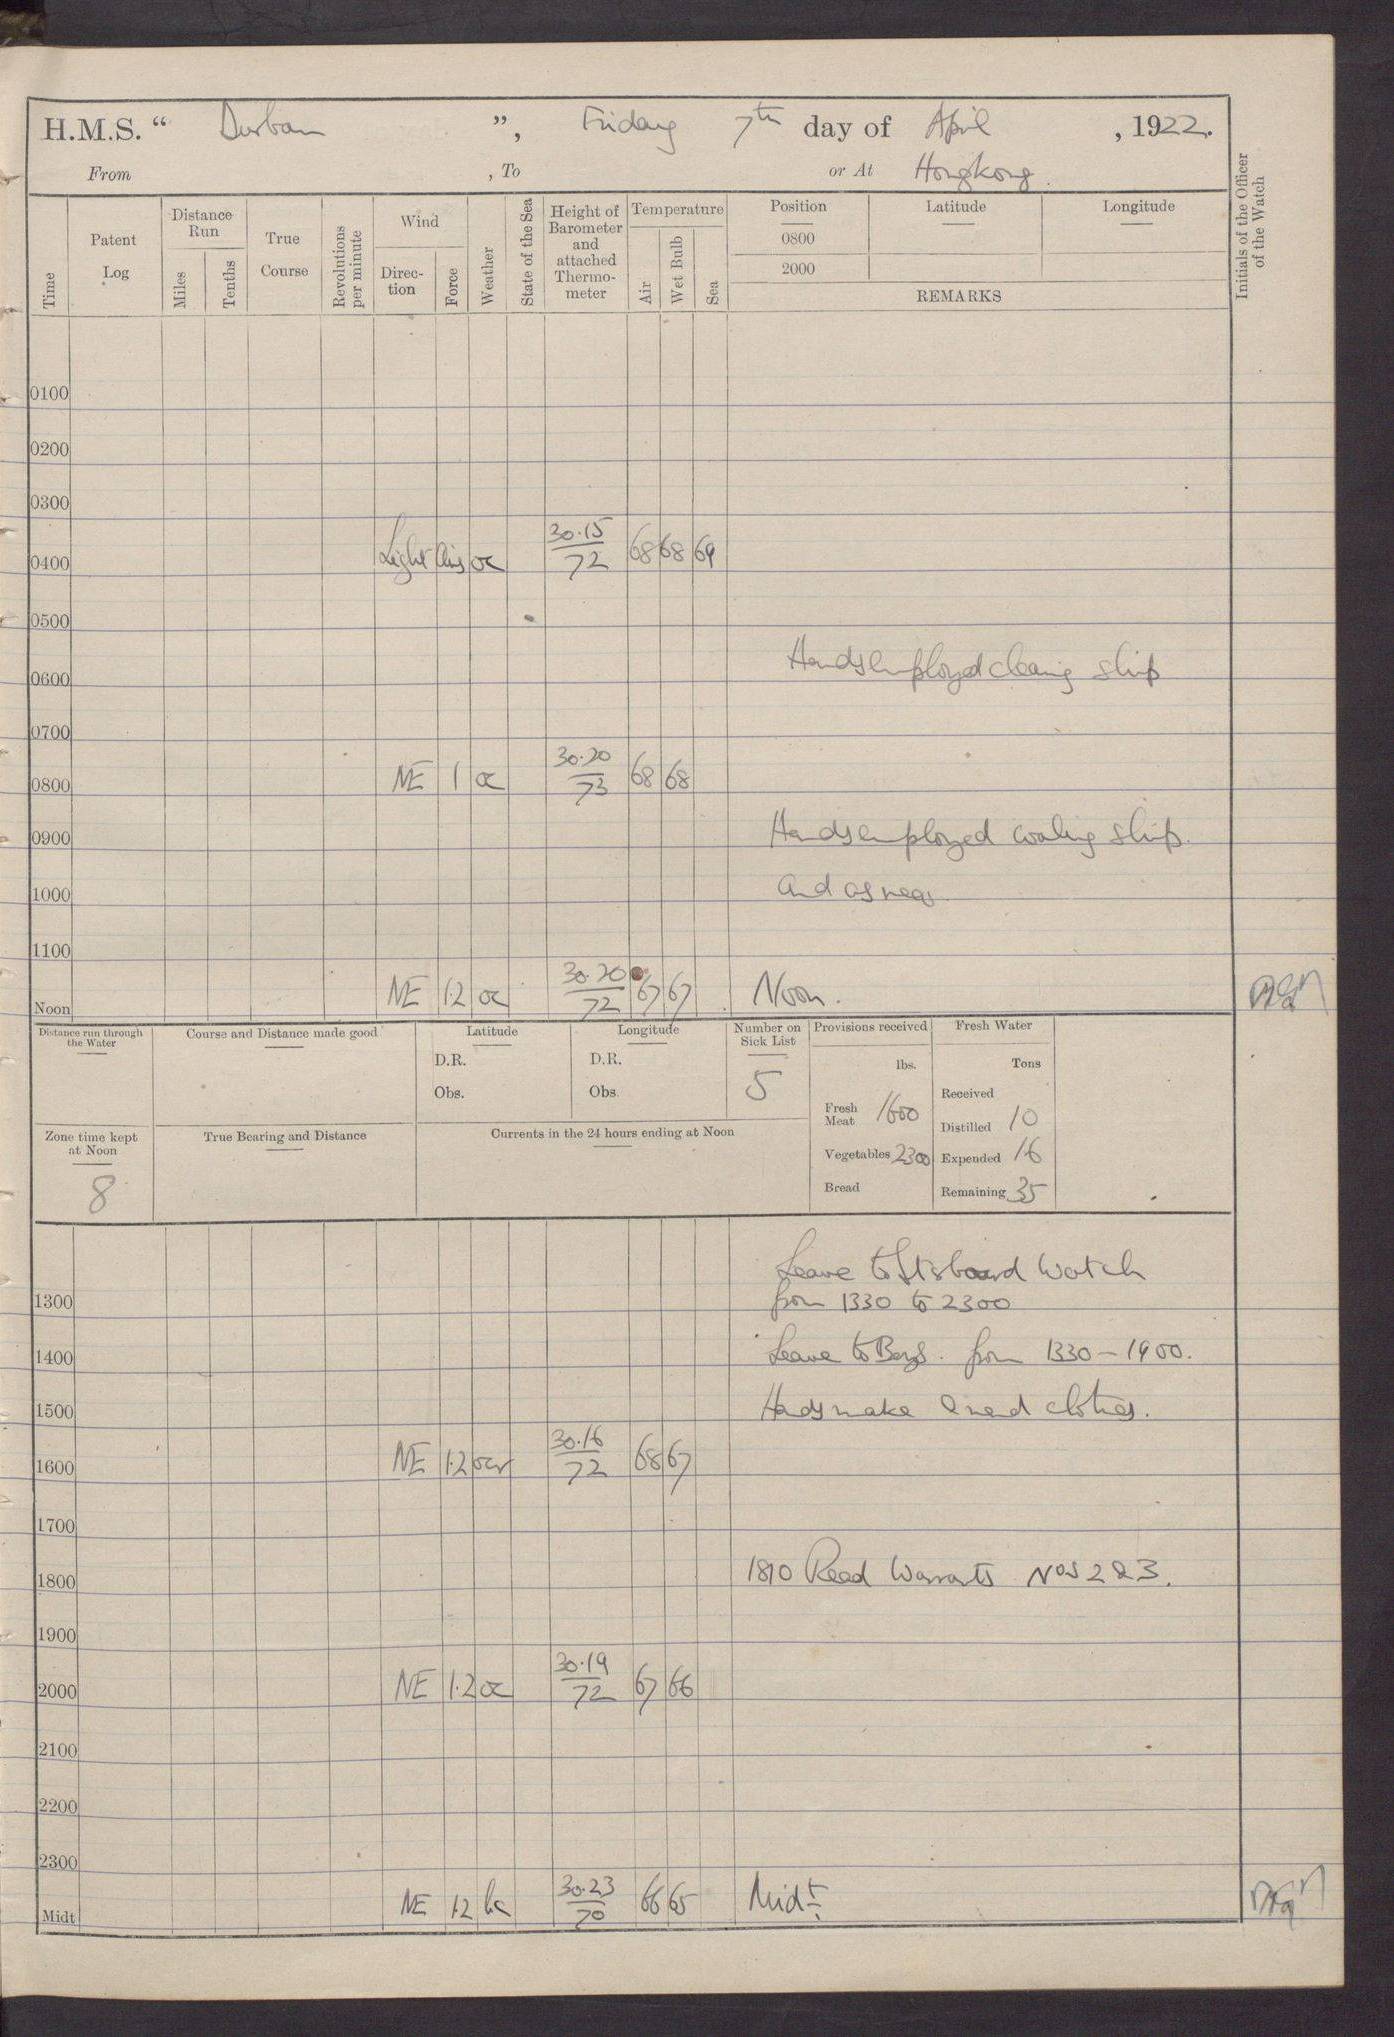 H.M.S. “ Durban ”, Friday 7th day of April , 1922.
From , To or At Hongkong.
Time
Patent Log
Distance Run
Miles
Tenths
True Course
Revolutions per minute
Wind
Direc-tion
Force
Weather
State of the Sea
Height of Barometer and attached Thermo-meter
Temperature
Air
Wet Bulb
Sea
Position Latitude Longitude
0800
2000
REMARKS
Initials of the Officer of the Watch
0100
0200
0300
0400 Light Airs oc 30.15/72 68 68 69
0500
0600 Hands employed cleaning ship
0700
0800 NE 1 oc 30.20/73 68 68
0900 Hands employed coaling ship.
1000 and as necy
1100
Noon NE 1.2 oc 30.20/72 67 67 Noon.
Distance run through the Water
Course and Distance made good
Latitude
D.R.
Obs.
Longitude
D.R.
Obs.
Number on Sick List
5
Provisions received
lbs.
Fresh Meat 1600
Vegetables 2300
Bread
Fresh Water
Tons
Received
Distilled 10
Expended 16
Remaining 35
Zone time kept at Noon
8
True Bearing and Distance
Currents in the 24 hours ending at Noon
Leave to Stsboard Watch
1300 from 1330 to 2300
1400 Leave to Boys. from 1330 - 1900.
1500 Hands make & mend clothes.
1600 NE 1.2 ocr 30.16/72 68 67
1700
1800 1810 Read Warrants Nos 2 & 3.
1900
2000 NE 1.2 oc 30.19/72 67 66
2100
2200
2300
Midt NE 1.2 bc 30.23/70 66 65 Midt.